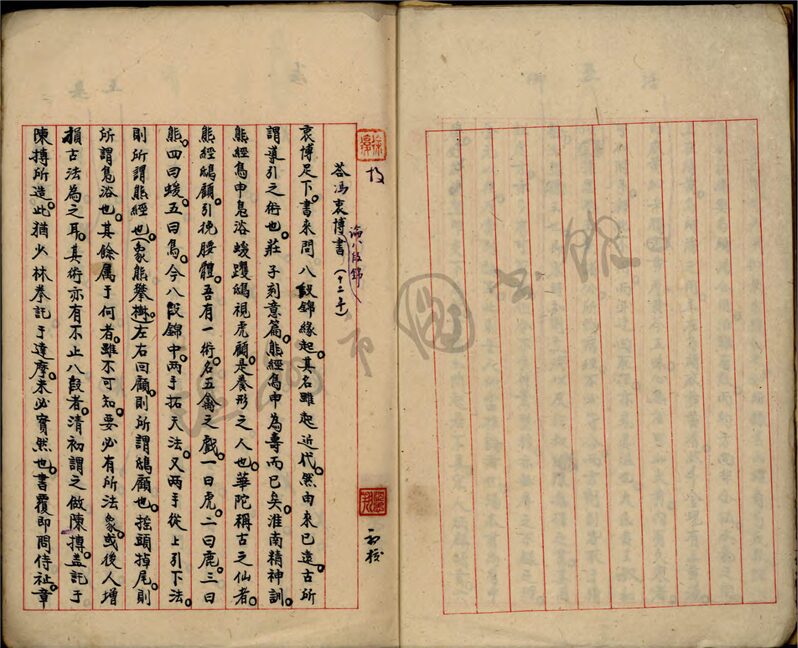 答馮衷博書(十三年)
論八段錦
衷博足下。書來問八段錦緣起。其名雖起近代。然由來已遠。古所
謂導引之術也。莊子刻意篇。熊經鳥申。為壽而已矣。淮南精神訓。
熊經鳥申。鳧浴蝯躩。鴟視虎顧。是養形之人也。華陀稱古之仙者。
熊經鴟顧。引挽腰體。吾有一術。名五禽之戲。一曰虎。二曰鹿。三曰
熊。四曰蝯。五曰鳥。今八段錦中。兩手拓天法。又兩手從上引下法。
則所謂熊經也。(象熊攀樹)左右回顧。則所謂鴟顧也。搖頭掉尾。則
所謂鳧浴也。其餘屬于何者。雖不可知。要必有所法象。或後人增
損古法為之耳。其術亦有不止八段者。清初謂之做陳摶。蓋託于
陳摶所造。此猶少林拳託于達摩。未必實然也。書覆即問侍祉。章
初校